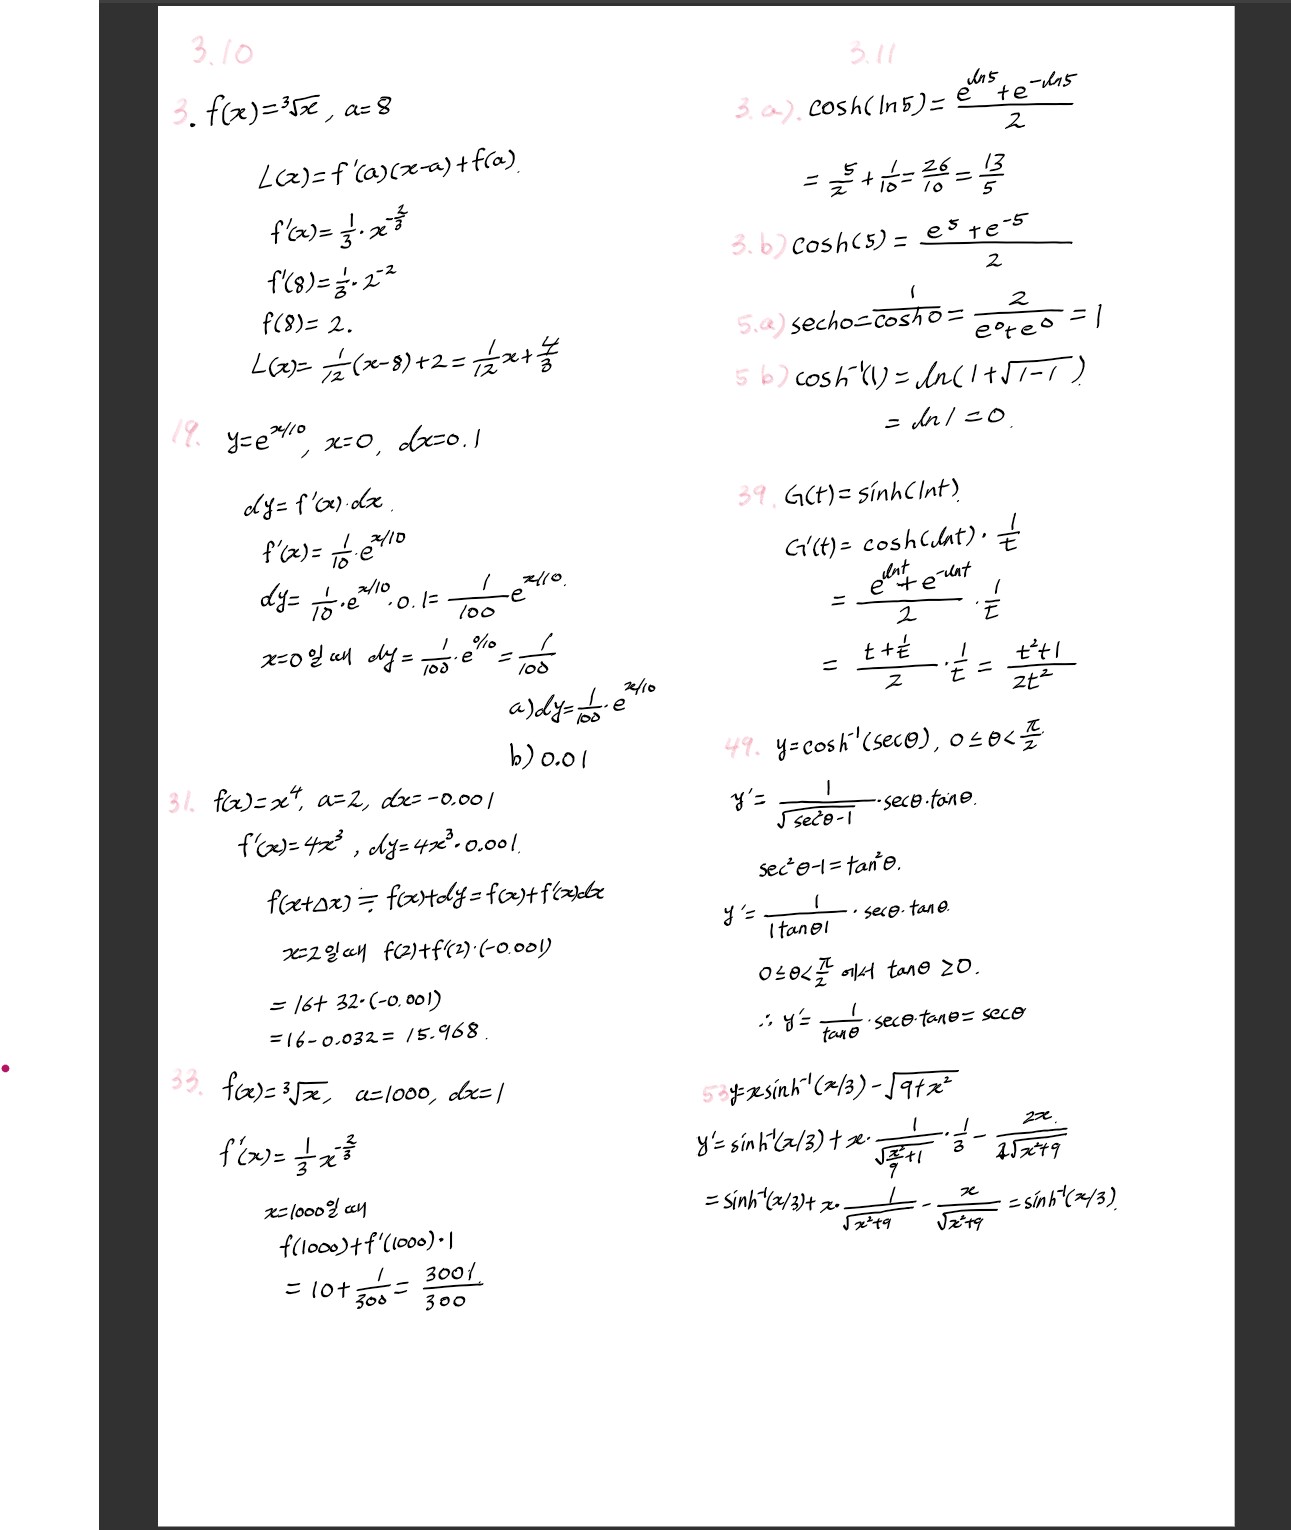 3.10
3. f(x)=³√x, a=8
L(x)=f'(a)(x-a)+f(a).
f'(x)=1/3·x^(-2/3)
f'(8)=1/3·2^-2
f(8)=2.
L(x)=1/12(x-8)+2=1/12x+4/3
19. y=e^(x/10), x=0, dx=0.1
dy=f'(x)·dx.
f'(x)=1/10·e^(x/10)
dy=1/10·e^(x/10)·0.1=1/100 e^(x/10).
x=0일 때 dy=1/100·e^(0/10)=1/100
a)dy=1/100·e^(x/10)
b)0.01
31. f(x)=x⁴, a=2, dx=-0.001
f'(x)=4x³, dy=4x³·0.001.
f(x+Δx)≒f(x)+dy=f(x)+f'(x)dx
x=2일 때 f(2)+f'(2)·(-0.001)
=16+32·(-0.001)
=16-0.032=15.968.
33. f(x)=³√x, a=1000, dx=1
f'(x)=1/3x^(-2/3)
x=1000일 때
f(1000)+f'(1000)·1
=10+1/300=3001/300
3.11
3.a). cosh(ln5)=(e^(ln5)+e^(-ln5))/2
=5/2+1/10=26/10=13/5
3.b) cosh(5)=(e^5+e^-5)/2
5.a) sech0=1/cosh0=2/(e⁰+e⁰)=1
5 b) cosh⁻¹(1)=ln(1+√(1-1)).
=ln1=0.
39. G(t)=sinh(lnt).
G'(t)=cosh(lnt)·1/t
=(e^(lnt)+e^(-lnt))/2·1/t
=(t+1/t)/2·1/t=(t²+1)/2t²
49. y=cosh⁻¹(secθ), 0≤θ<π/2.
y'=1/√(sec²θ-1)·secθ·tanθ.
sec²θ-1=tan²θ.
y'=1/|tanθ|·secθ·tanθ.
0≤θ<π/2 에서 tanθ≥0.
∴ y'=1/tanθ·secθ·tanθ=secθ
53 y=xsinh⁻¹(x/3)-√(9+x²)
y'=sinh⁻¹(x/3)+x·1/√(x²/9+1)·1/3-2x/2√(x²+9)
=sinh⁻¹(x/3)+x·1/√(x²+9)-x/√(x²+9)=sinh⁻¹(x/3).